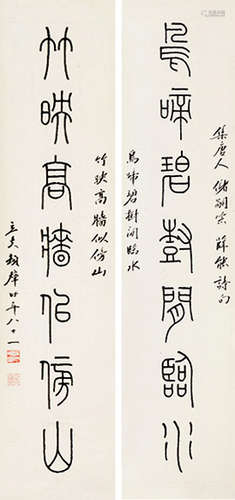 集唐人儲嗣宗薛能詩句
鳥啼碧樹閒臨水
鳥啼碧樹閒臨水
竹映高牆似傍山
竹映高牆似傍山
立夫年八十一